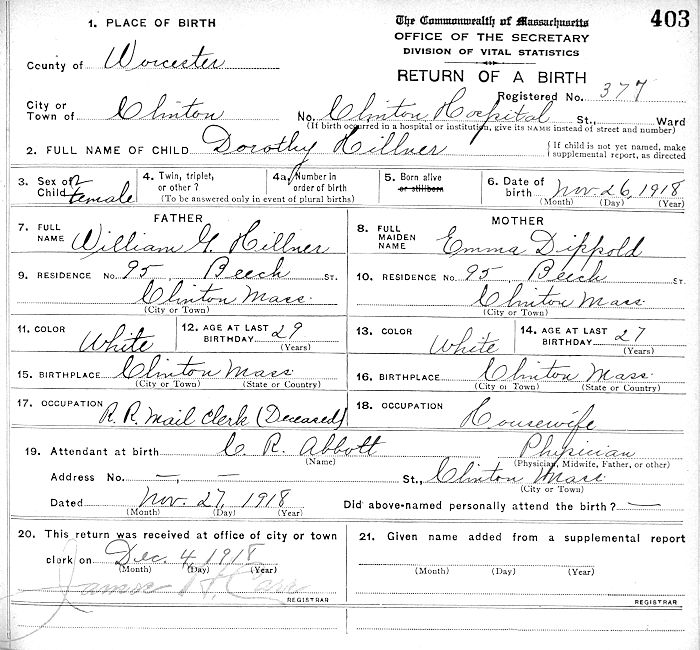 403
1. PLACE OF BIRTH
The Commonwealth of Massachusetts
OFFICE OF THE SECRETARY
DIVISION OF VITAL STATISTICS
RETURN OF A BIRTH
County of Worcester
Registered No. 377
City or
Town of Clinton No. Clinton Hospital St., Ward
(If birth occurred in a hospital or institution, give its NAME instead of street and number)
2. FULL NAME OF CHILD Dorothy Hillner
{ If child is not yet named, make
supplemental report, as directed
3. Sex of Child Female
4. Twin, triplet, or other ?
4a. Number in order of birth
(To be answered only in event of plural births)
5. Born alive or stillborn
6. Date of birth Nov. 26, 1918
(Month) (Day) (Year)
FATHER
7. FULL NAME William G. Hillner
MOTHER
8. FULL MAIDEN NAME Emma Dippold
9. RESIDENCE No. 95 Beech St.
Clinton Mass.
(City or Town)
10. RESIDENCE No. 95 Beech St.
Clinton Mass.
(City or Town)
11. COLOR White
12. AGE AT LAST BIRTHDAY 29
(Years)
13. COLOR White
14. AGE AT LAST BIRTHDAY 27
(Years)
15. BIRTHPLACE Clinton Mass.
(City or Town) (State or Country)
16. BIRTHPLACE Clinton Mass.
(City or Town) (State or Country)
17. OCCUPATION R.R. Mail Clerk (Deceased)
18. OCCUPATION Housewife
19. Attendant at birth C. R. Abbott Physician
(Name) (Physician, Midwife, Father, or other)
Address No. —, — St., Clinton Mass.
(City or Town)
Dated Nov. 27, 1918 Did above-named personally attend the birth ? —
(Month) (Day) (Year)
20. This return was received at office of city or town
clerk on Dec. 4, 1918
(Month) (Day) (Year)
James H. Carr
REGISTRAR
21. Given name added from a supplemental report
(Month) (Day) (Year)
REGISTRAR